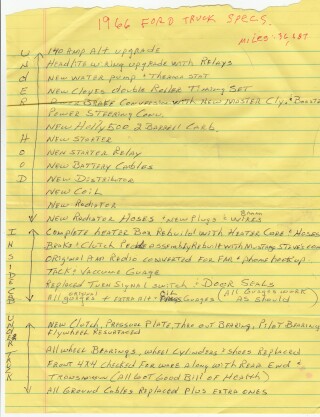 1966 FORD TRUCK SPECS.
miles-
UNDER HOOD
140 Amp Alt. upgrade
Headlite wiring upgrade with Relays
New water pump + Thermo stat
New Cloyes double Roller Timing Set
Power Brake Conversion with New Master Cly. + Booster
Power Steering Conv.
New Holly 500 2 Barrel Carb.
New Starter
New Starter Relay
New Battery Cables
New Distributor
New Coil
New Radiator
New Radiator Hoses + New Plugs + 8mm Wires
INSIDE CAB
Complete heater Box Rebuild with Heater Core + Hoses
Brake + Clutch Pedle assembly Rebuilt with Mustang
Original Am Radio converted for FM + phone hook up
Tack + Vaccume Guage
Replaced Turn Signal switch + Door Seals
All original gauges + extra Alt + Oil Guages (All Gauges work as Should)
UNDER TRUCK
New Clutch, Pressure Plate, Thro out Bearing, Pilot Bearing
Flywheel Resurfaced
All wheel Bearings, wheel Cylinders + shoes Replaced
Front 4x4 Checked For wear along with Rear End +
Transmission (All Got Good Bill of Health)
All Ground Cables Replaced Plus Extra ones